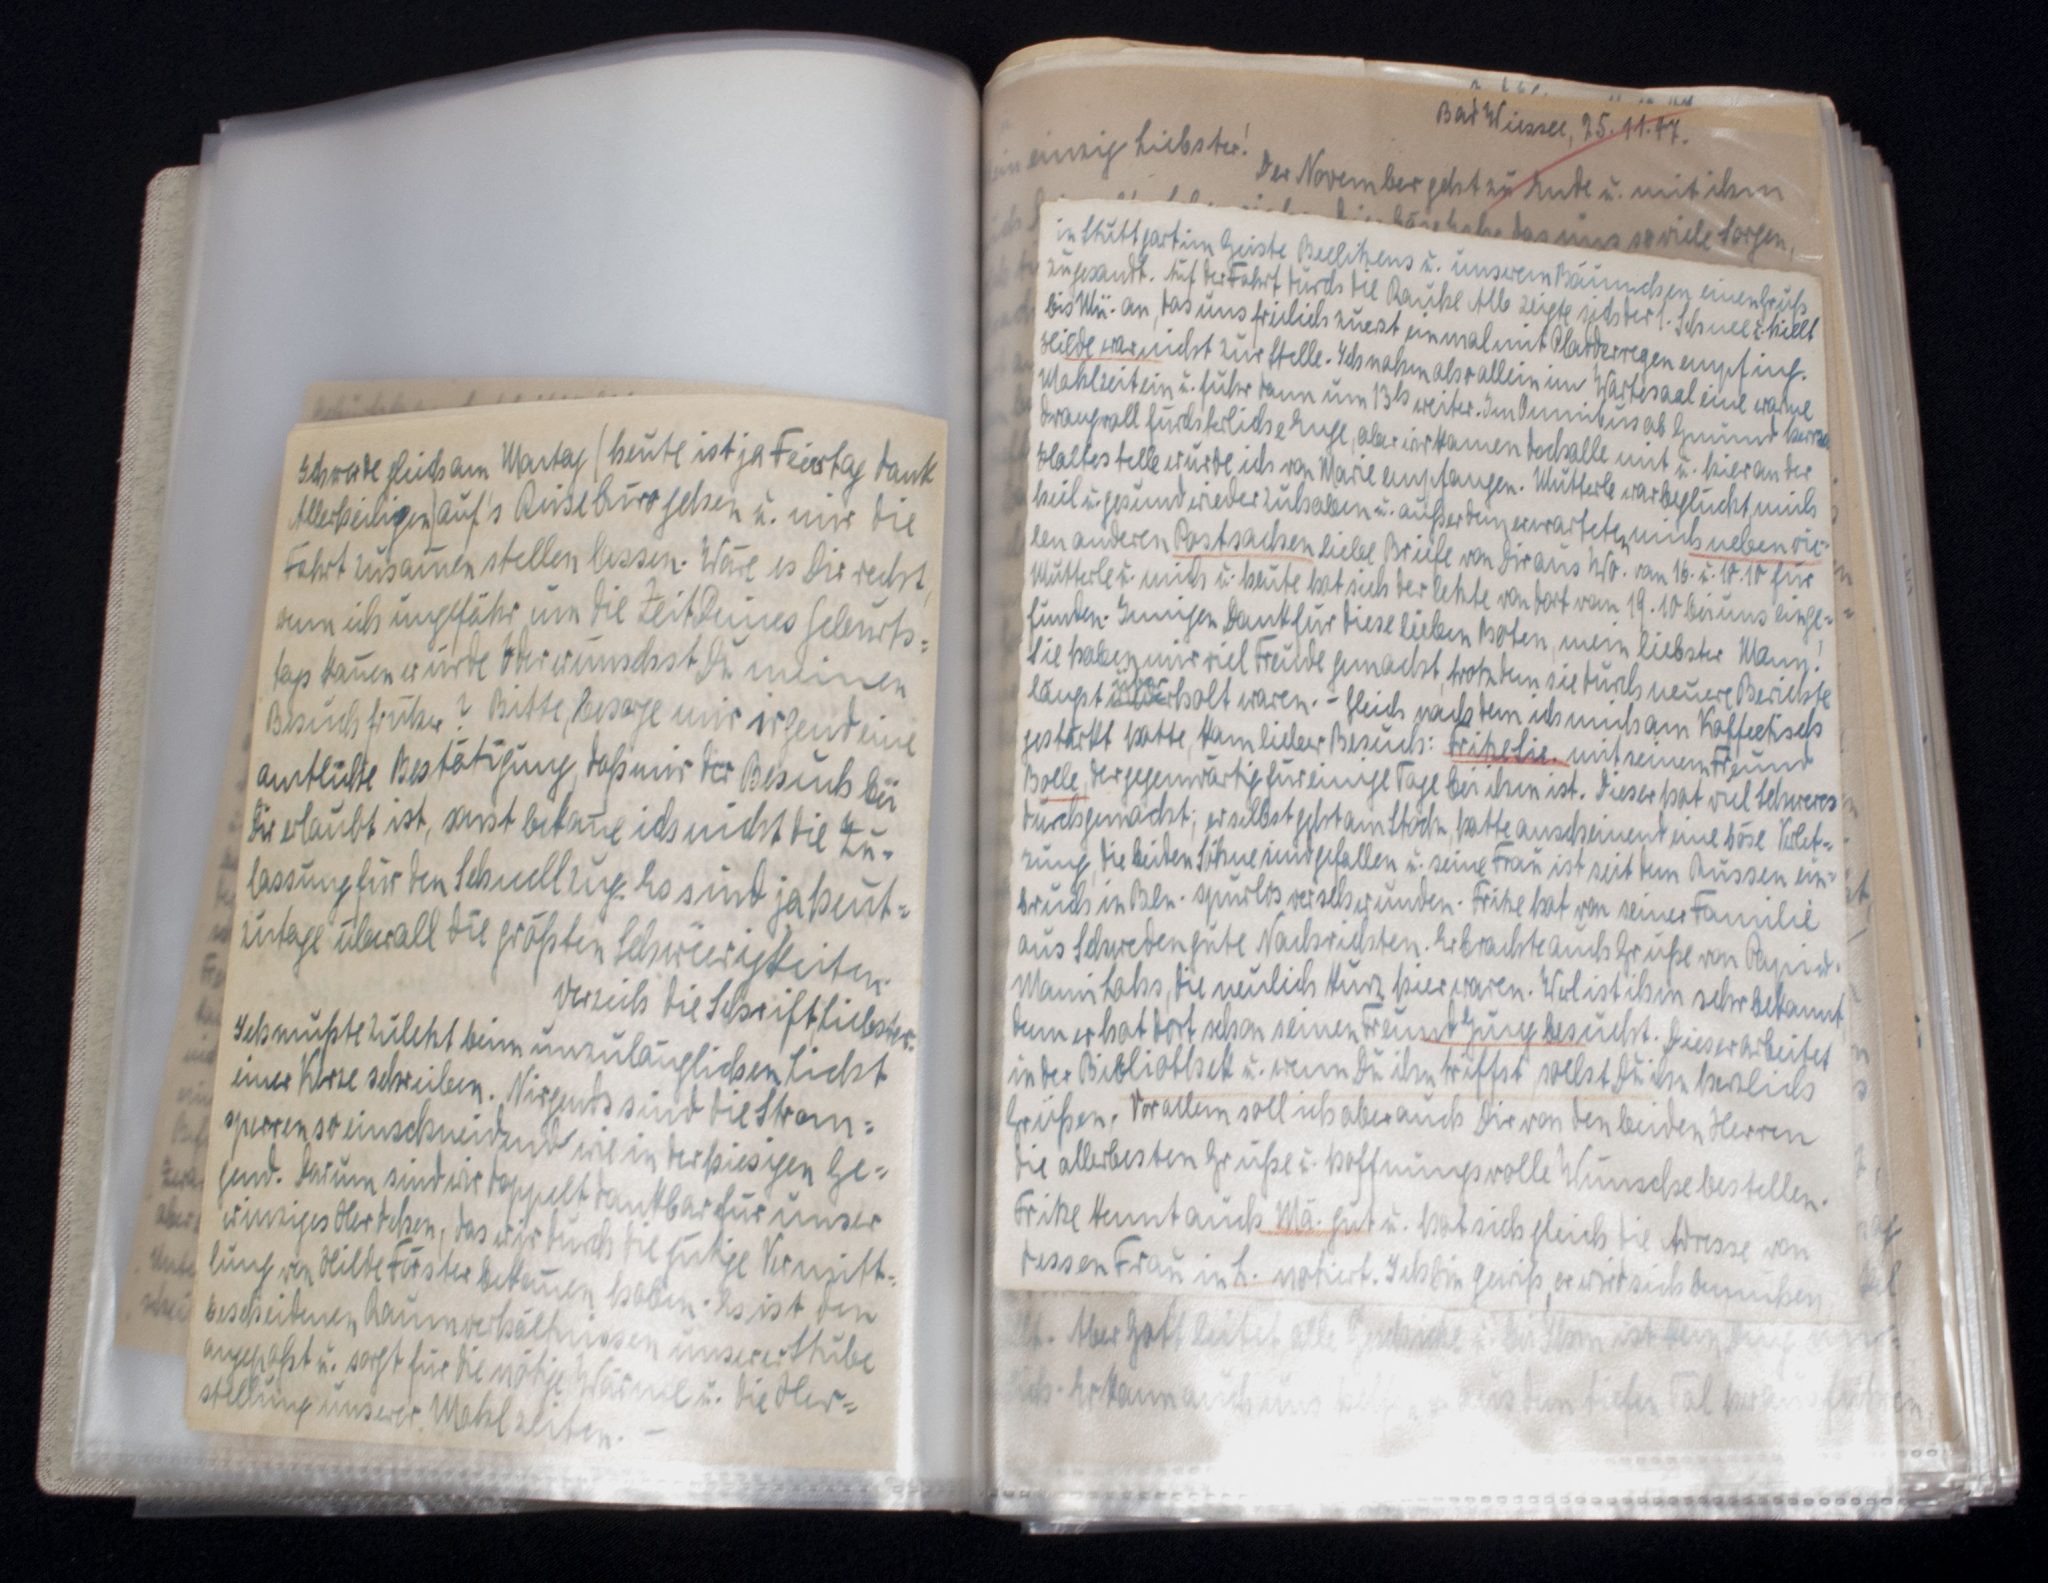 Ich werde gleich am Montag (heute ist ja Feiertag dank
Allerheiligen) auf's Reisebüro gehen u. mir die
Fahrt zusam̄en stellen lassen. Wäre es Dir recht,
wenn ich ungefähr um die Zeit Deines Geburts=
tags kom̄en würde oder wünschst Du meinen
Besuch früher? Bitte, besorge mir irgend eine
amtliche Bestätigung, daß mir der Besuch bei
Dir erlaubt ist, sonst bekom̄e ich nicht die Zu=
lassung für den Schnellzug. Es sind ja heut=
zutage überall die größten Schwierigkeiten.
Verzeih die Schrift, liebster.
Ich mußte zuletzt beim unzulänglichen Licht
einer Kerze schreiben. Nirgends sind die Strom=
sperren so einschneidend wie in der hiesigen Ge=
gend. Darum sind wir doppelt dankbar für unser
winziges Herdchen, das wir durch die gütige Vermitt=
lung von Hilde Förster bekom̄en haben. Es ist den
bescheidenen Raumverhältnissen unserer Stube
angepaßt u. sorgt für die nötige Wärme u. die Her=
stellung unserer Mahlzeiten. –
Bad Wiessee, 25.11.47.
einzig Liebster!
Der November geht zu Ende u. mit ihm
das uns so viele Sorgen,
in Stuttgart im Geiste Beelitzens u. unserem Bäumchen einen Gruß
zugesandt. Auf der Fahrt durch die Rauhe Alb zeigte sich der 1. Schnee u. hielt
bis Mü. an, das uns freilich zuerst einmal mit Pladderregen empfing.
Hilde war nicht zur Stelle. Ich nahm also allein im Wartesaal eine warme
Mahlzeit ein u. fuhr dann um 13h weiter. Im Omnibus ab Gmünd herrschte
drangvoll fürchterliche Enge, aber wir kamen doch alle mit u. hier an der
Haltestelle wurde ich von Marie empfangen. Mutterle war beglückt, mich
heil u. gesund wieder zu haben u. außerdem erwarteten mich neben vie=
len anderen Postsachen liebe Briefe von Dir aus Wo. vom 16. u. 18.10 für
Mutterle u. mich u. heute hat sich der letzte von dort vom 19.10 bei uns einge=
funden. Innigen Dank für diese lieben Boten, mein liebster Mann!
Sie haben mir viel Freude gemacht, trotzdem sie durch neuere Berichte
längst überholt waren. – Gleich nachdem ich mich am Kaffeetisch
gestärkt hatte, kam lieber Besuch: Fritze Lie. mit seinem Freund
Bolle, der gegenwärtig für einige Tage bei ihm ist. Dieser hat viel Schweres
durchgemacht; er selbst geht am Stock, hatte anscheinend eine böse Verlet=
zung, die beiden Söhne sind gefallen u. seine Frau ist seit dem Russenein=
bruch in Bln. spurlos verschwunden. Fritze hat von seiner Familie
aus Schweden gute Nachrichten. Er brachte auch Grüße von Papi u.
Mami Lahs, die neulich kurz hier waren. Werl ist ihm sehr bekannt,
denn er hat dort schon seinen Freund Jung besucht. Dieser arbeitet
in der Bibliothek u. wenn Du ihn triffst, sollst Du ihn herzlich
grüßen. Vor allem soll ich aber auch Dir von den beiden Herren
die allerbesten Grüße u. hoffnungsvolle Wünsche bestellen.
Fritze kennt auch Mä. gut u. hat sich gleich die Adresse von
dessen Frau in L. notiert. Ich bin gewiß, er wird sich bemühen
Aber Gott leitet alle Geschicke u. bei Ihm ist kein Ding
Er kann auch uns aus dem tiefen Tal herausführen